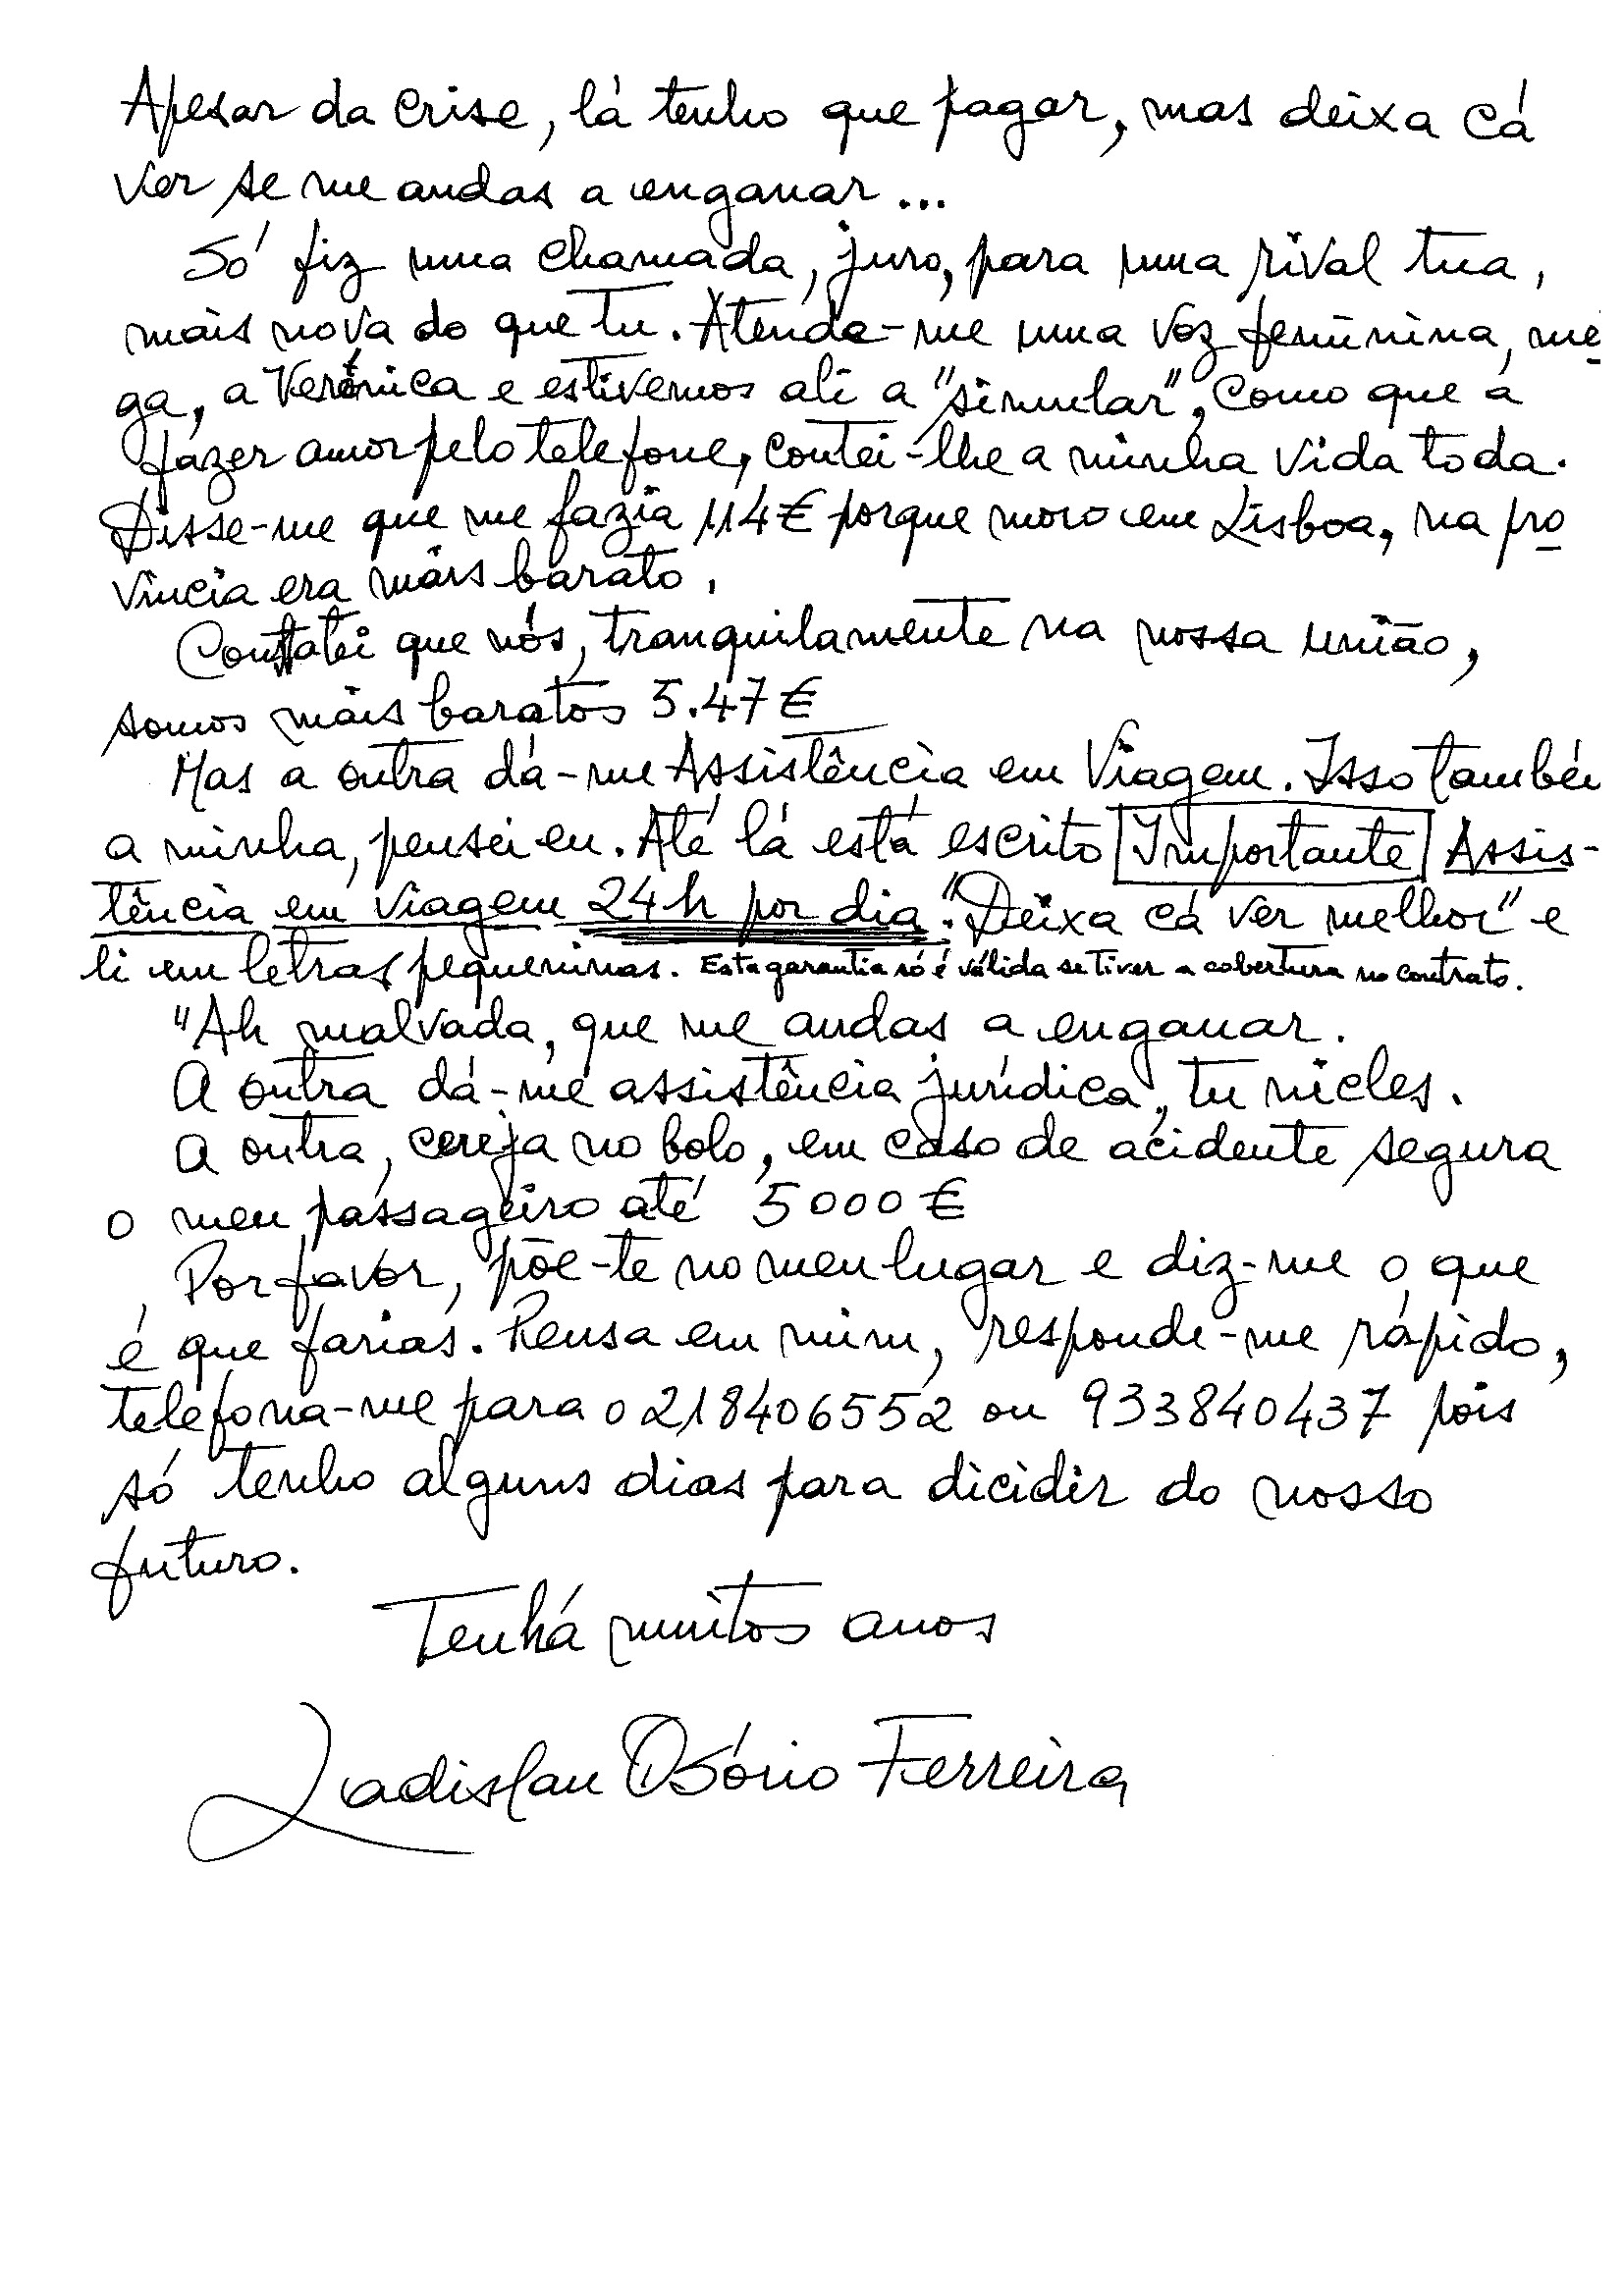 Apesar da crise, lá tenho que pagar, mas deixa cá
ver se me andas a enganar...
Só fiz uma chamada, juro, para uma rival tua,
mais nova do que tu. Atende-me uma voz feminina, mei
ga, a Verónica e estivemos ali a "simular", como que a
fazer amor pelo telefone, contei-lhe a minha vida toda.
Disse-me que me fazia 114€ porque moro em Lisboa, na pro
víncia era mais barato.
Constatei que nós, tranquilamente na nossa união,
somos mais baratos 5.47€
Mas a outra dá-me Assistência em Viagem. Isso também
a minha, pensei eu. Até lá está escrito Importante Assis-
tência em viagem 24h por dia. "Deixa cá ver melhor" e
li em letras pequeninas. Esta garantia só é válida se tiver a cobertura no contrato.
"Ah malvada, que me andas a enganar.
A outra dá-me assistência jurídica, tu nicles.
A outra, cereja no bolo, em caso de acidente segura
o meu passageiro até 5000€
Por favor, põe-te no meu lugar e diz-me o que
é que farias. Pensa em mim, responde-me rápido,
telefona-me para o 218406552 ou 933840437 pois
só tenho alguns dias para dicidir do nosso
futuro.
Tenhá muitos anos
Ladislau Osório Ferreira